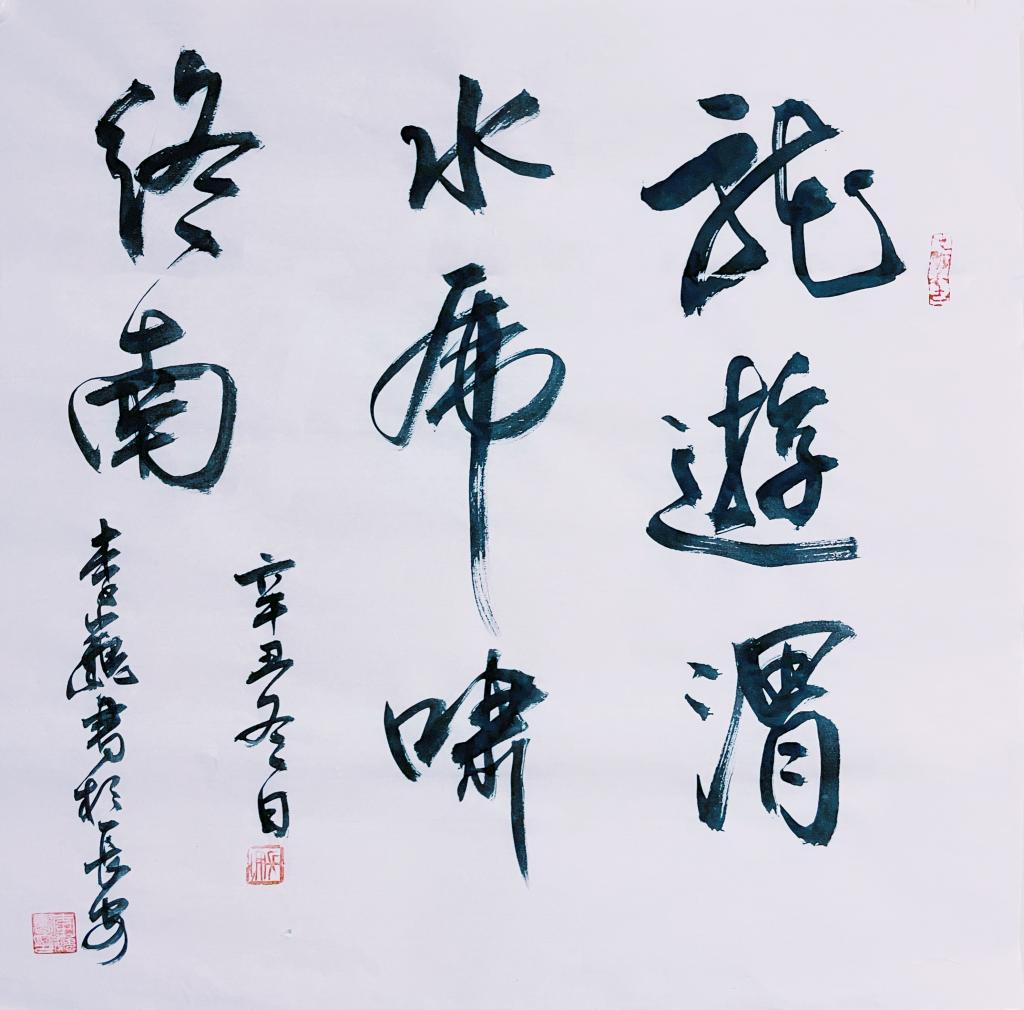 龍遊渭
水虎啸
终南
辛丑冬日
李巍書於長安